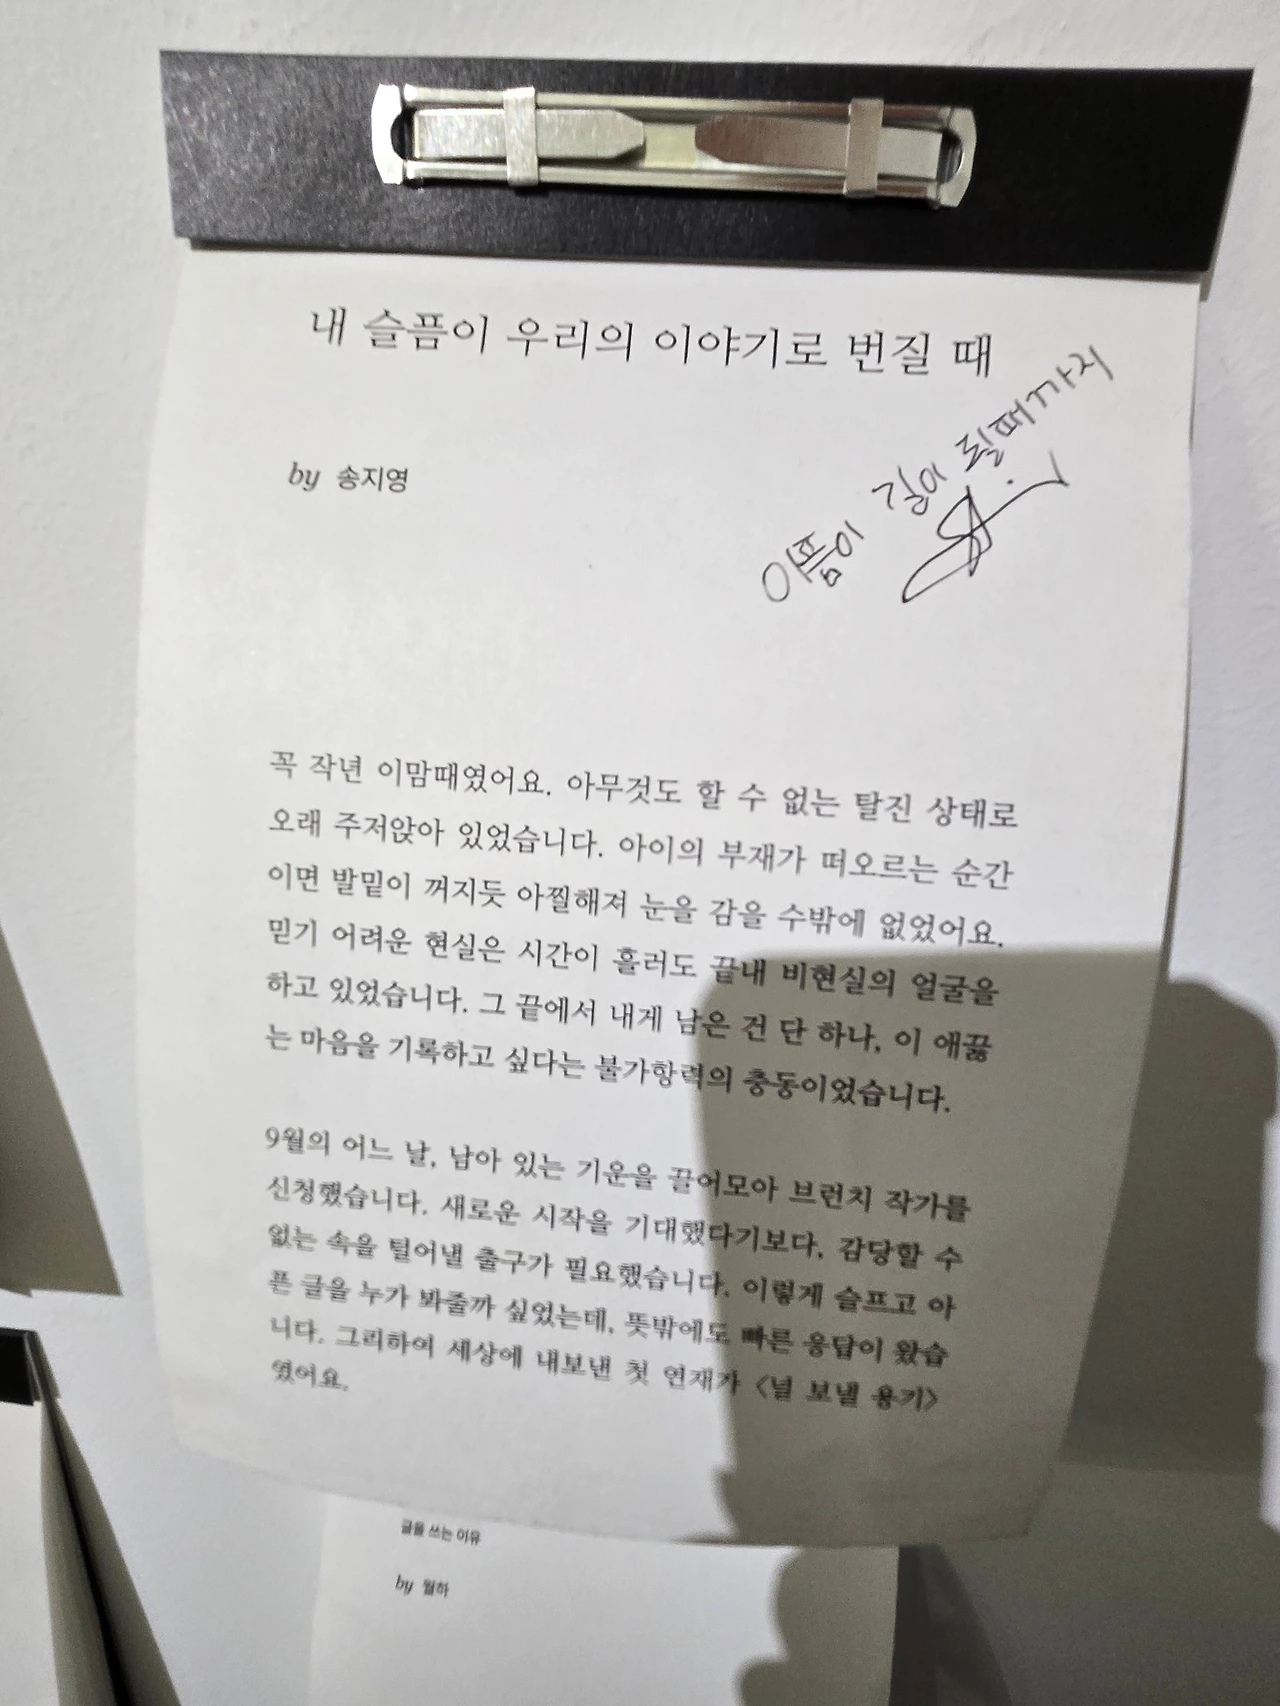 내 슬픔이 우리의 이야기로 번질 때
이픔이 길이 될때까지
by 송지영
꼭 작년 이맘때였어요. 아무것도 할 수 없는 탈진 상태로
오래 주저앉아 있었습니다. 아이의 부재가 떠오르는 순간
이면 발밑이 꺼지듯 아찔해져 눈을 감을 수밖에 없었어요.
믿기 어려운 현실은 시간이 흘러도 끝내 비현실의 얼굴을
하고 있었습니다. 그 끝에서 내게 남은 건 단 하나, 이 애끓
는 마음을 기록하고 싶다는 불가항력의 충동이었습니다.
9월의 어느 날, 남아 있는 기운을 끌어모아 브런치 작가를
신청했습니다. 새로운 시작을 기대했다기보다, 감당할 수
없는 속을 털어낼 출구가 필요했습니다. 이렇게 슬프고 아
픈 글을 누가 봐줄까 싶었는데, 뜻밖에도 빠른 응답이 왔습
니다. 그리하여 세상에 내보낸 첫 연재가 〈널 보낼 용기〉
였어요.
글을 쓰는 이유
by 월하